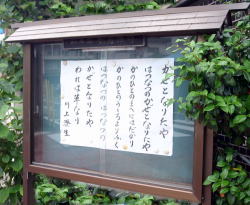 かぜとなりたや
はつなつのかぜとなりたや
かのひとのまへにはだかり
かのひとのうしろよりふく
はつなつの はつなつの
かぜとなりたや
われは草なり
川上澄生